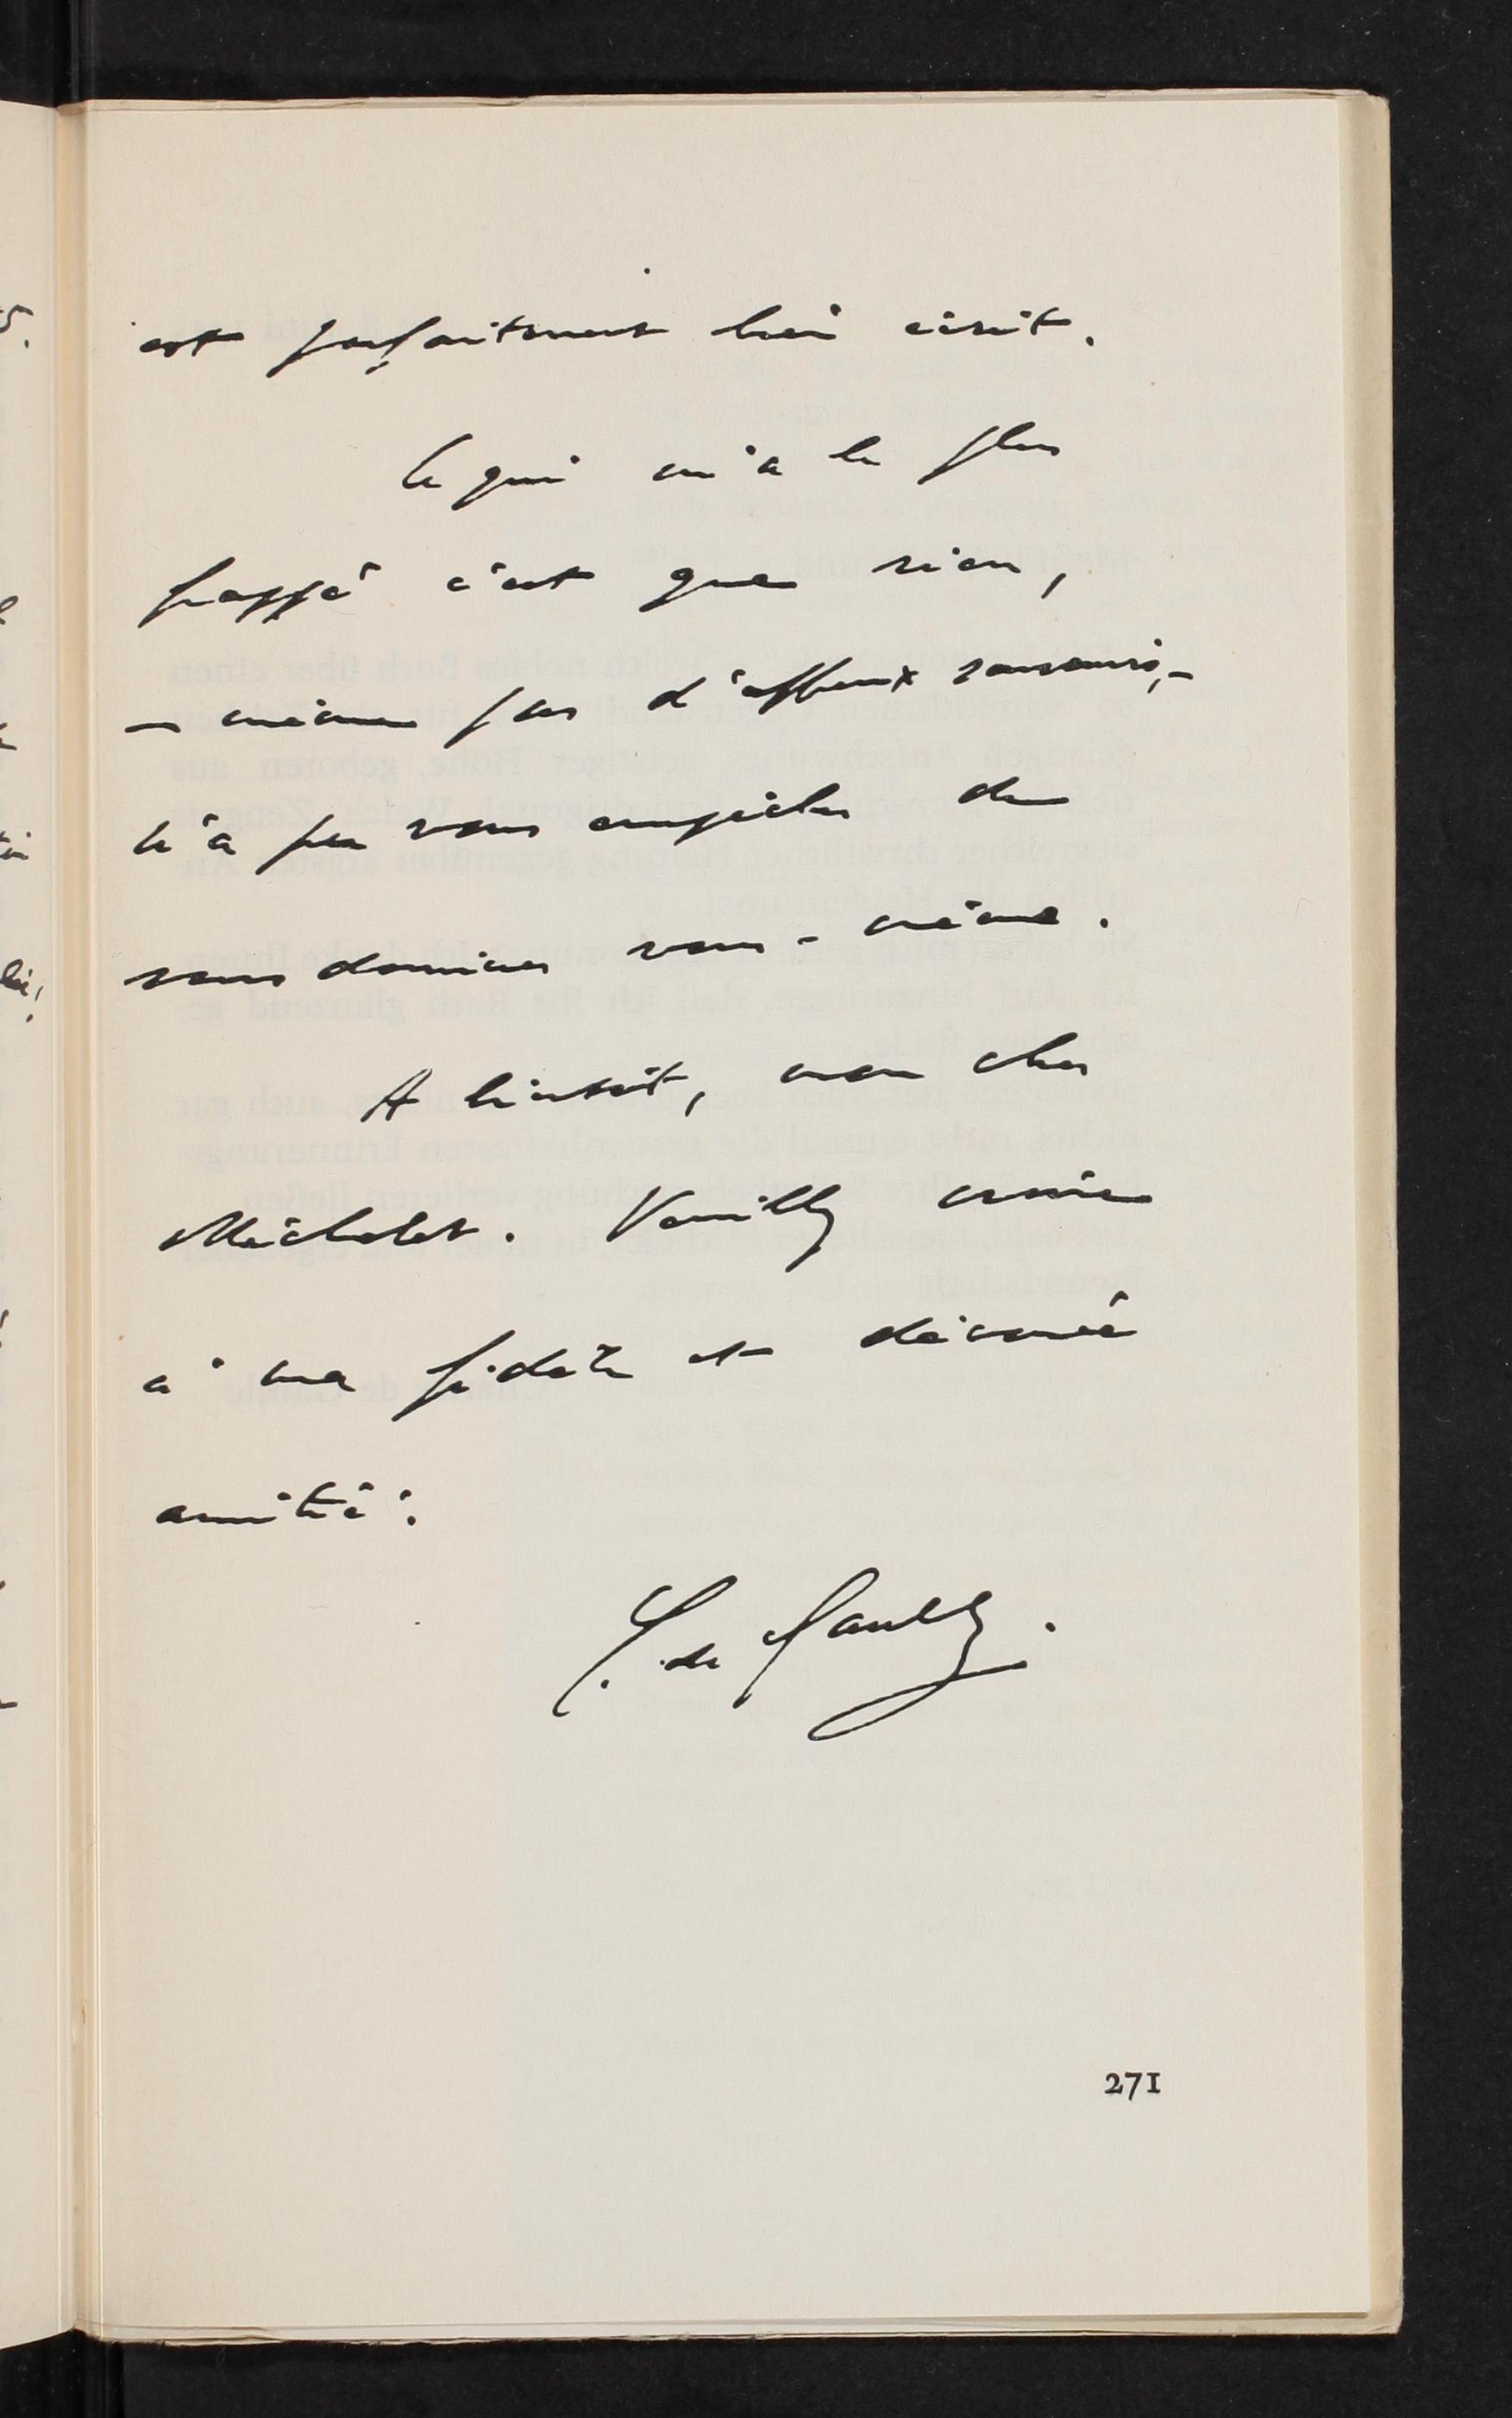 est parfaitement bien écrit.
Ce qui m'a le plus
frappé c'est que rien,
— même pas d'affreux souvenirs, —
n'a pu vous empêcher de
vous dominer vous-même.
A bientôt, mon cher
Michelet. Veuillez croire
à ma fidèle et dévouée
amitié.
C. de Gaulle.
271